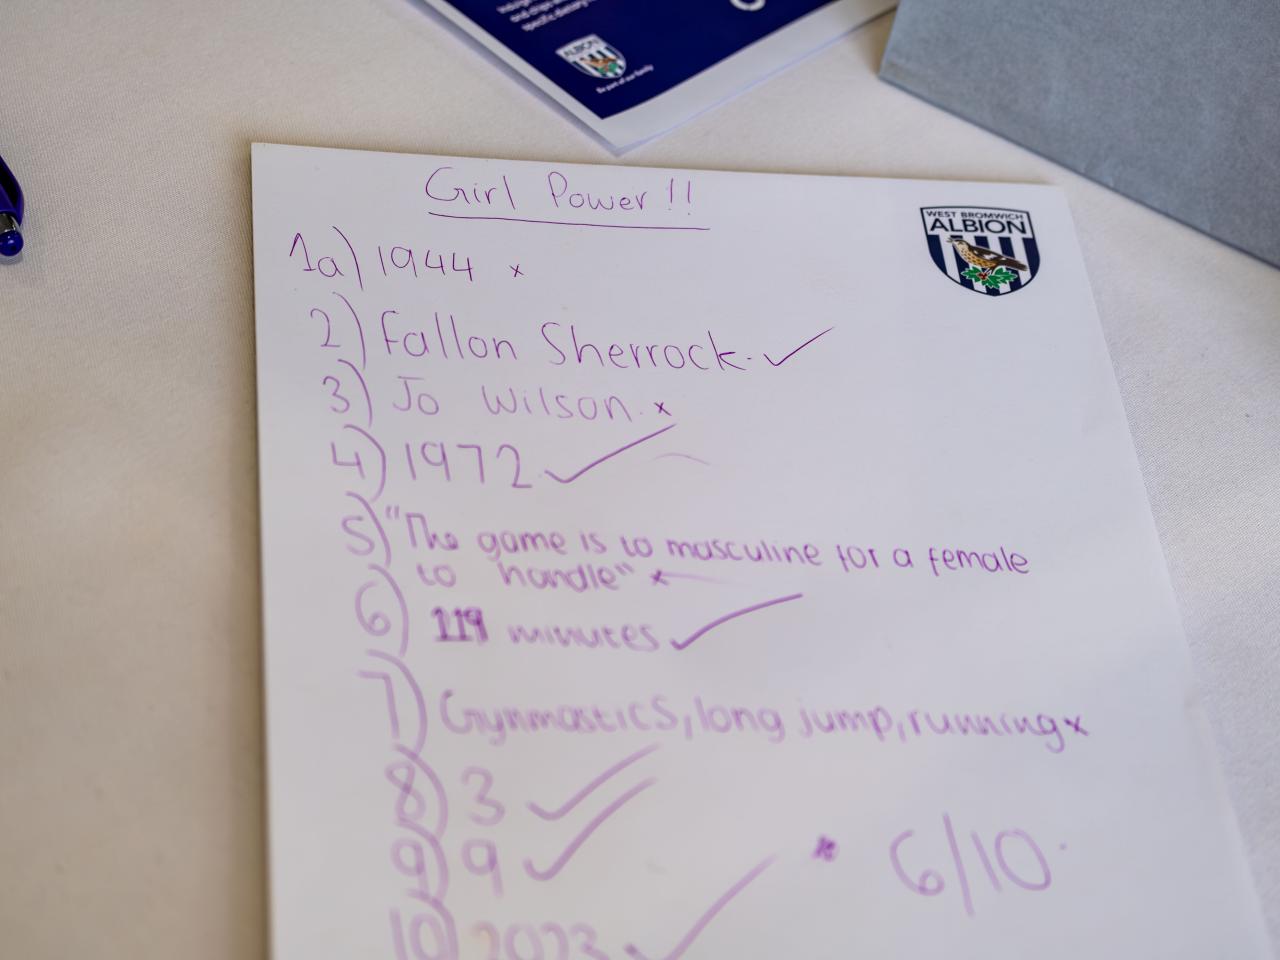 ALBION
Be part of our family
WEST BROMWICH
ALBION
Girl Power!!
1a) 1944 x
2) Fallon Sherrock. ✓
3) Jo Wilson. x
4) 1972 ✓
5) "The game is to masculine for a female
to handle" x
6) 119 minutes ✓
7) Gynmastics, long jump, running x
8) 3 ✓
9) 9 ✓
6/10.
10) 2023 ✓